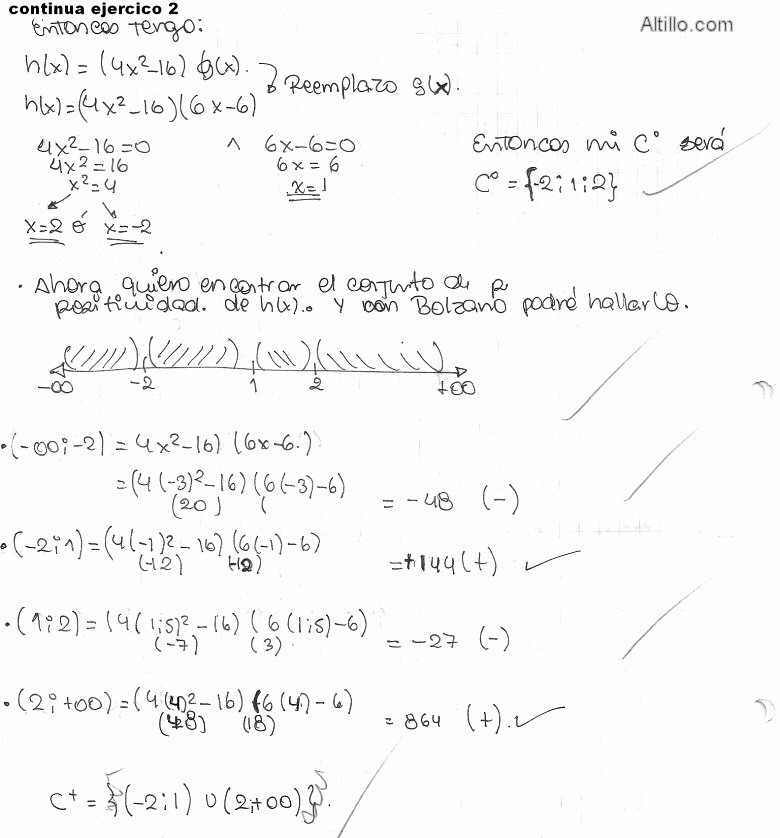 continua ejercico 2
Altillo.com
Entonces tengo:
h(x) = (4x²-16) g(x).
Reemplazo g(x).
h(x) = (4x²-16)(6x-6)
4x²-16=0 ^ 6x-6=0
4x²=16 6x = 6
x²=4 x=1
x=2 ó x=-2
Entonces mi C° será
C° = {-2;1;2}
• Ahora quiero encontrar el conjunto de
positividad. de h(x). Y con Bolzano podré hallarlo.
-∞ -2 1 2 +∞
• (-∞;-2) = 4x²-16) (6x-6.)
= (4(-3)²-16) (6(-3)-6)
(20) ( = -48 (-)
• (-2;1) = (4(-1)²-16) (6(-1)-6)
(-12) (-12) = +144 (+)
• (1;2) = (4(1;5)²-16) (6(1;5)-6)
(-7) (3) = -27 (-)
• (2;+∞) = (4(4)²-16) (6(4)-6)
(48) (18) = 864 (+).
C⁺ = {(-2;1) ∪ (2;+∞)}.